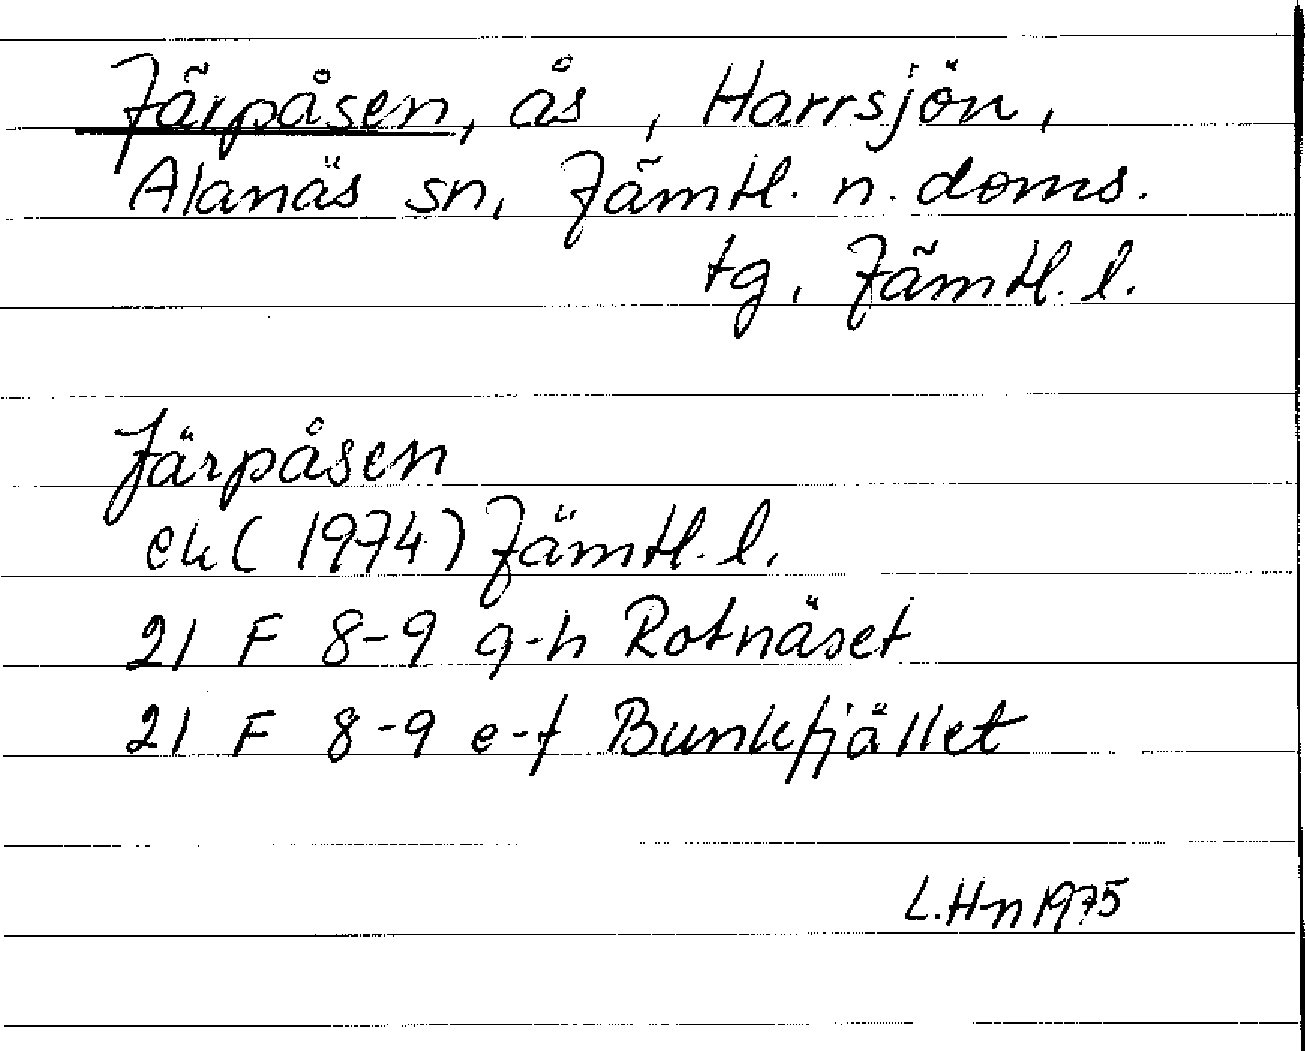 Järpåsen, ås, Harrsjön,
Alanäs sn, Jämtl. n. doms.
tg, Jämtl. l.
Järpåsen
ek (1974) Jämtl. l.
21 F 8-9 g-h Rotnäset
21 F 8-9 e-f Bunkfjället
L. Hn 1975